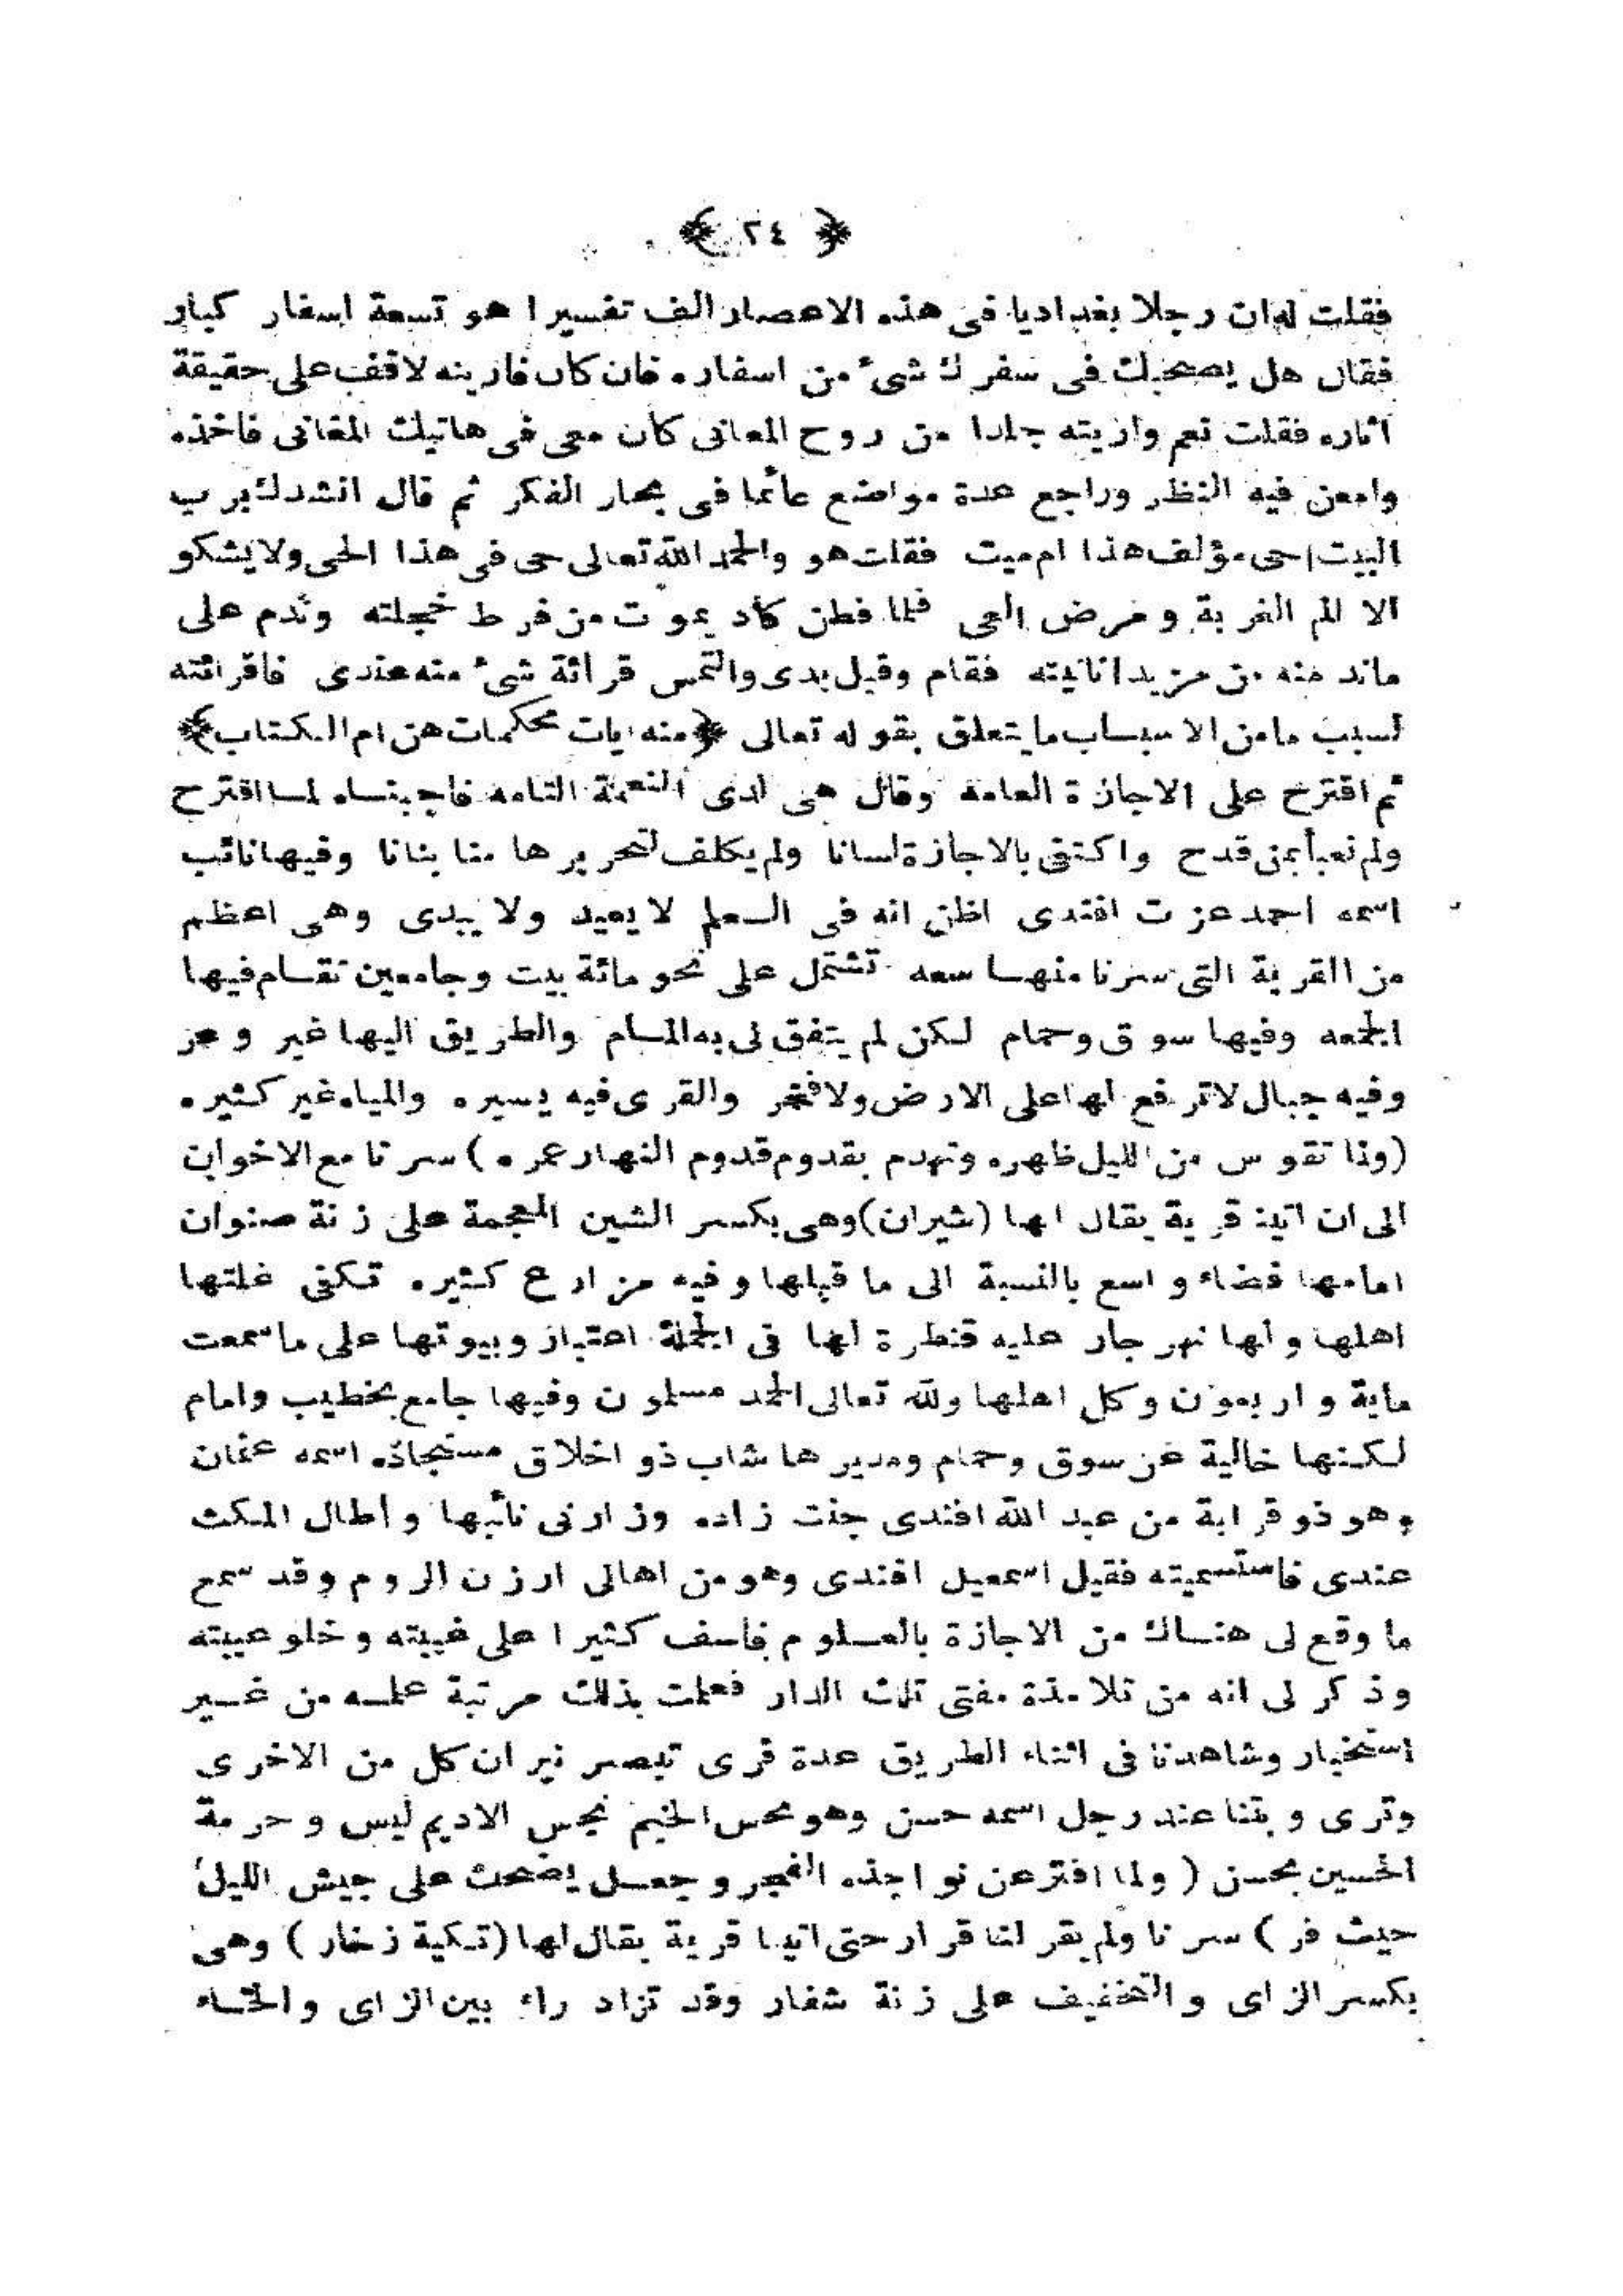 ﴿ ٢٤ ﴾
فقلت له ان رجلا بغداديا فى هذه الاعصار الف تفسيرا هو تسعة اسفار كبار
فقال هل يصحبك فى سفرك شئ من اسفاره فان كان فارينه لاقف على حقيقة
آثاره فقلت نعم واريته جلدا من روح المعانى كان معى فى هاتيك المغانى فاخذه
وامعن فيه النظر وراجع عدة مواضع عائما فى بحار الفكر ثم قال انشدك برب
البيت احى مؤلف هذا ام ميت فقلت هو والحمد لله تعالى حى فى هذا الحى ولا يشكو
الا الم الغربة ومرض العى فلما فطن كاد يموت من فرط خجلته وندم على
ماند منه من مزيد انانيته فقام وقبل يدى والتمس قرائة شئ منه عندى فاقرائته
لسبب ما من الاسباب ما يتعلق بقوله تعالى ﴿منه ايات محكمات هن ام الكتاب﴾
ثم اقترح على الاجازة العامة وقال هى لدى النعمة التامه فاجبناه لما اقترح
ولم نعبأ بمن قدح واكتفى بالاجازة لسانا ولم يكلف لتحريرها منا بنانا وفيها نائب
اسمه احمد عزت افندى اظن انه فى العلم لا يعيد ولا يبدى وهى اعظم
من القرية التى سرنا منها سعه تشتمل على نحو مائة بيت وجامعين تقام فيها
الجمعه وفيها سوق وحمام لكن لم يتفق لى به المام والطريق اليها غير وعر
وفيه جبال لا ترفع لها على الارض ولا فخر والقرى فيه يسيره والمياه غير كثيره
(ولما تقوس من الليل ظهره وتهدم بقدوم قدوم النهار عمره) سرنا مع الاخوان
الى ان اتينا قرية يقال لها (شيران) وهى بكسر الشين المعجمة على زنة صنوان
امامها فضاء واسع بالنسبة الى ما قبلها وفيه مزارع كثيره تكفى غلتها
اهلها ولها نهر جار عليه قنطرة لها فى الجملة اعتبار وبيوتها على ما سمعت
ماية واربعون وكل اهلها ولله تعالى الحمد مسلمون وفيها جامع بخطيب وامام
لكنها خالية عن سوق وحمام ومديرها شاب ذو اخلاق مستجاده اسمه عثمان
وهو ذو قرابة من عبد الله افندى جنت زاده وزارنى نائبها واطال المكث
عندى فاستسميته فقيل اسمعيل افندى وهو من اهالى ارزن الروم وقد سمع
ما وقع لى هناك من الاجازة بالعلوم فاسف كثيرا على غيبته وخلو عيبته
وذكر لى انه من تلامذة مفتى تلك الدار فعلمت بذلك مرتبة علمه من غير
استخبار وشاهدنا فى اثناء الطريق عدة قرى تبصر نيران كل من الاخرى
وترى وبتنا عند رجل اسمه حسن وهو نحس الخيم نجس الاديم ليس وحرمة
الحسين بحسن (ولما افتر عن نواجذه الفجر وجعل يضحك على جيش الليل
حيث فر) سرنا ولم يقر لنا قرار حتى اتينا قرية يقال لها (تكية زخار) وهى
بكسر الزاى والتخفيف على زنة شفار وقد تزاد راء بين الزاى والخاء